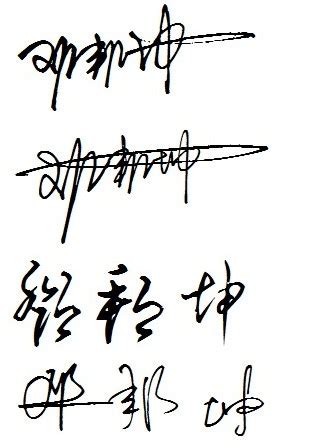 邓邦坤
邓邦坤
邓邦坤
邓邦坤